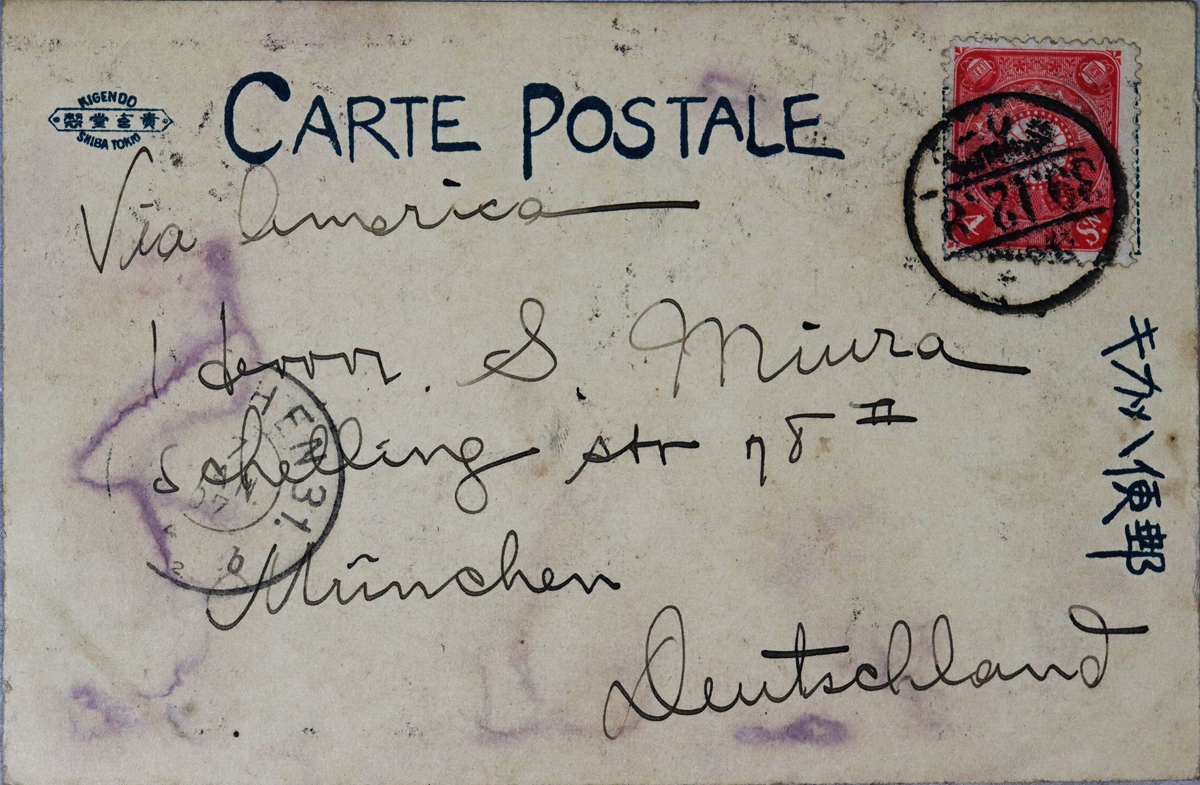 KIGENDO
SHIBA TOKIO
CARTE POSTALE
Via America
Herrn. S. Miura
Schelling str 78 II
München
Deutschland
キガハ便郵
HEN 31.